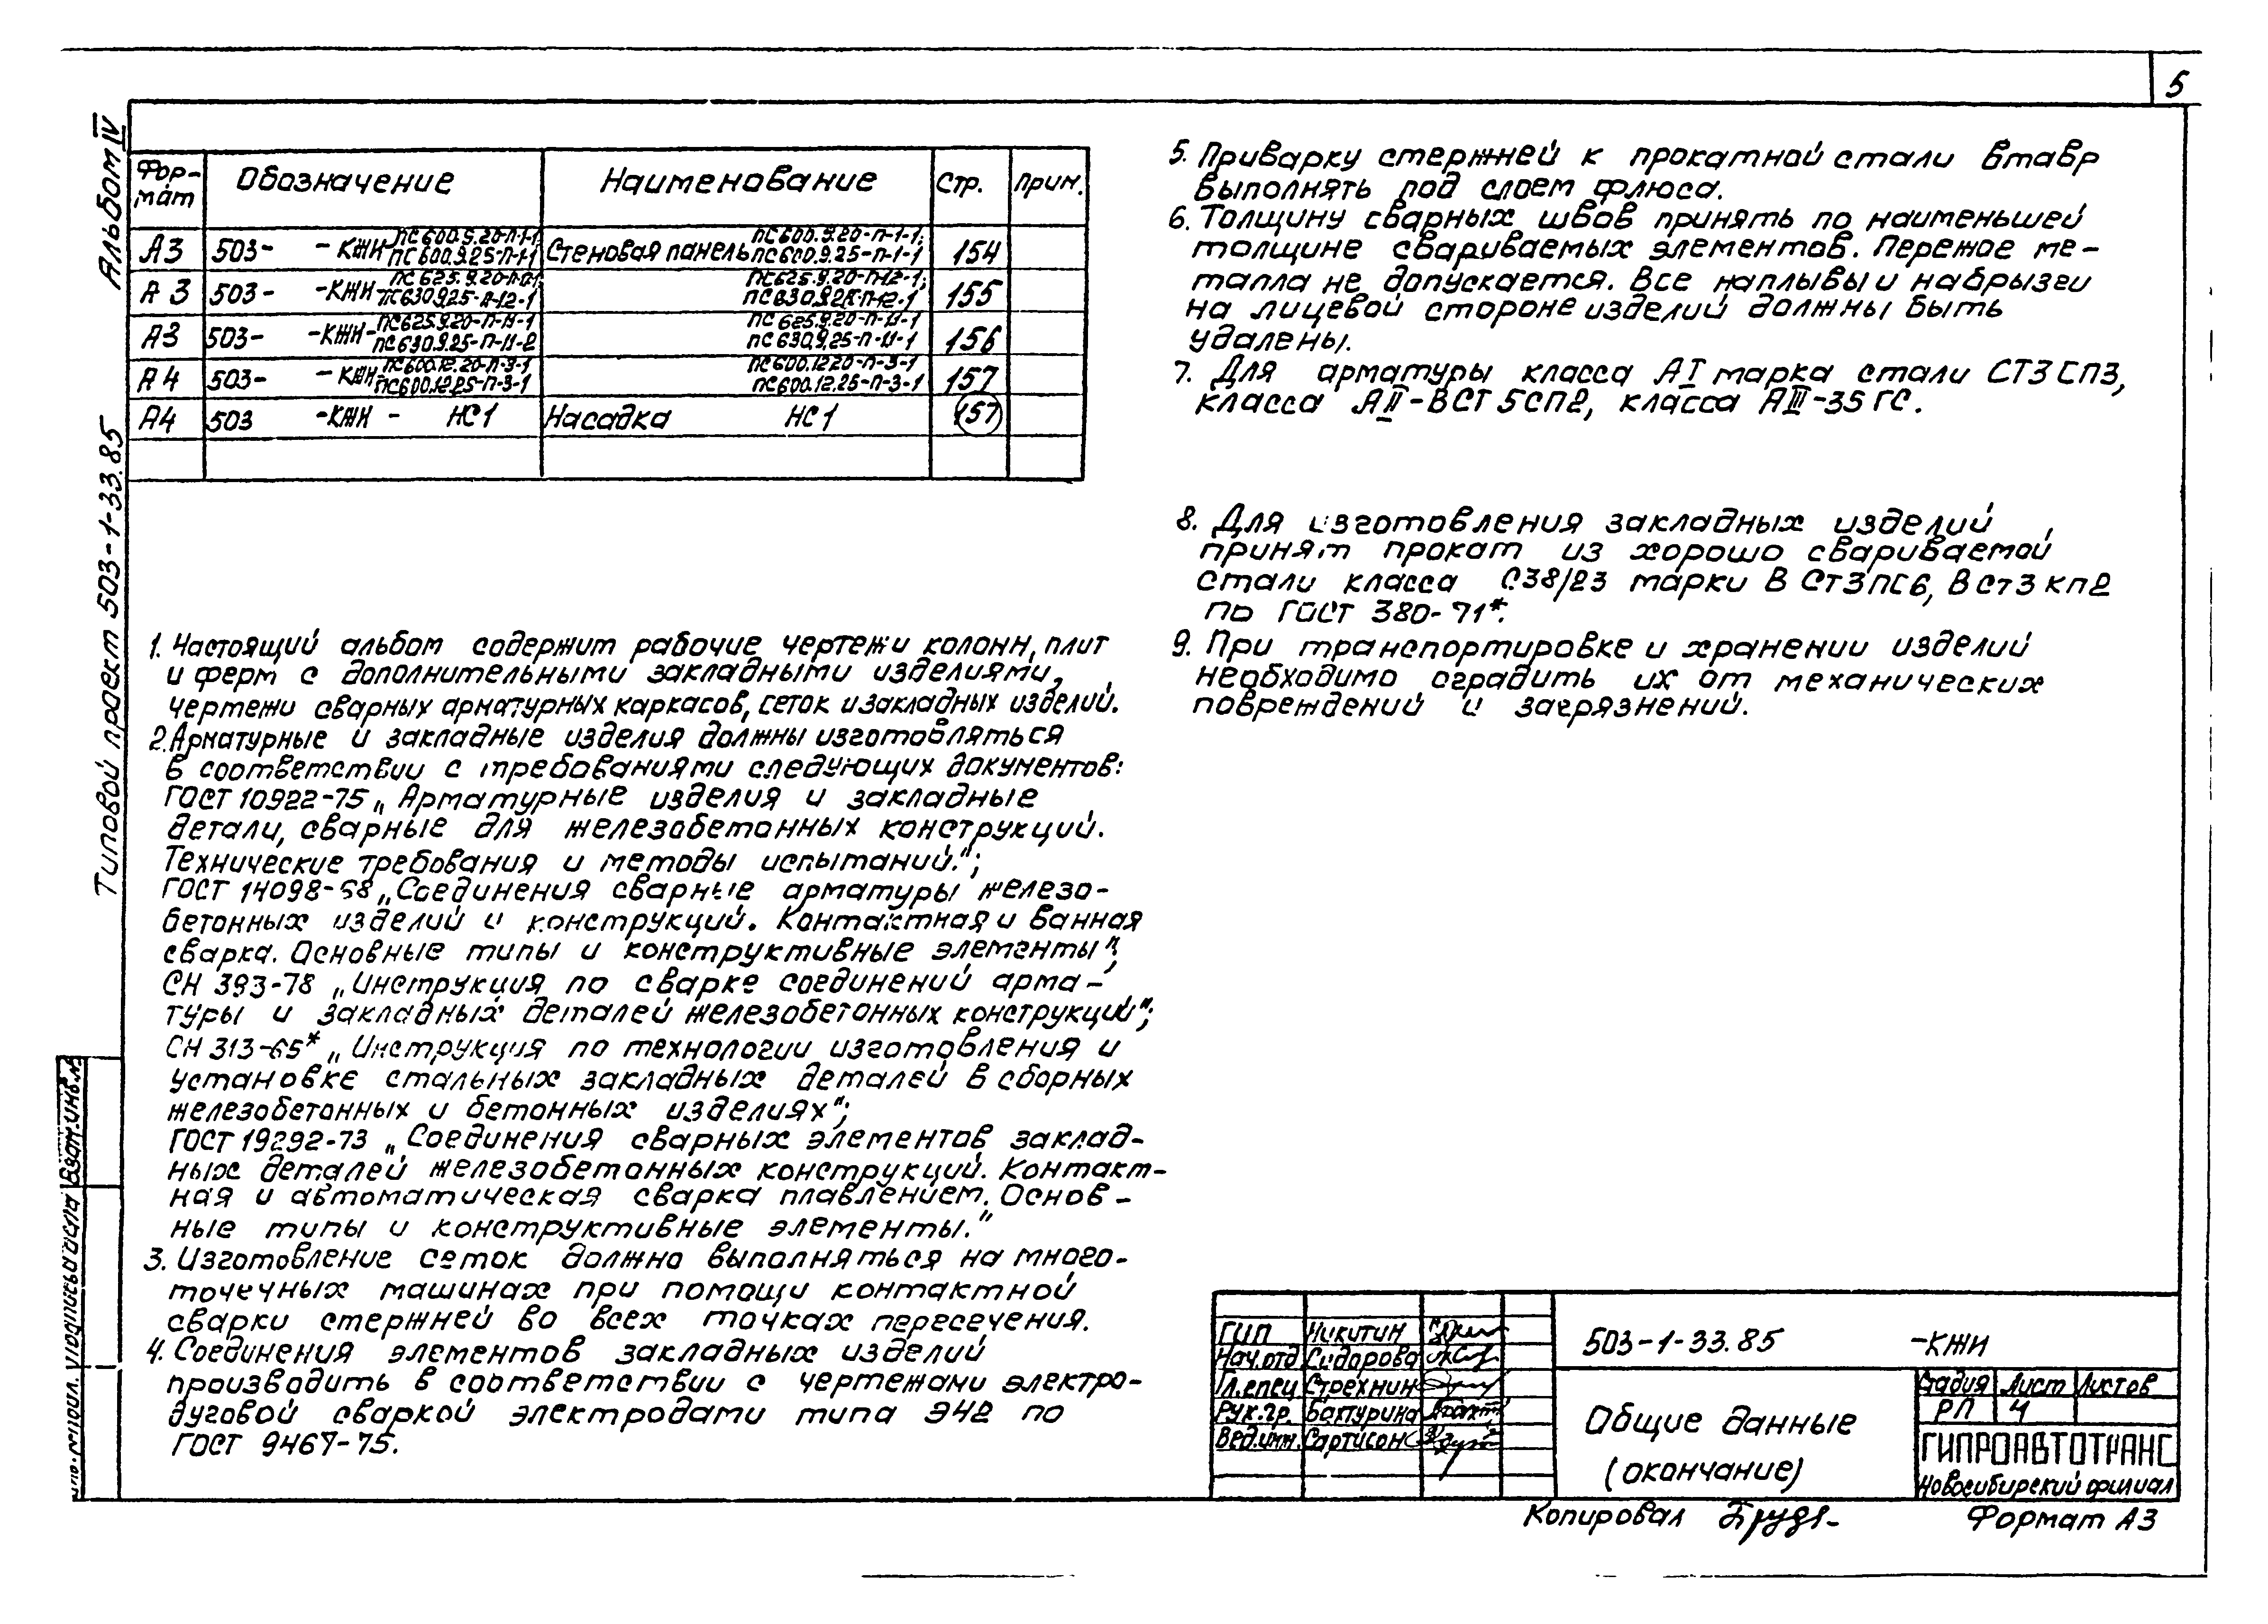 5
Альбом IV
Типовой проект 503-1-33.85
Формат Обозначение Наименование Стр. Прим.
А3 503- -КЖИ- ПС600.9.20-П-1-1; ПС600.9.25-П-1-1 Стеновая панель ПС600.9.20-П-1-1; ПС600.9.25-П-1-1 154
А3 503- -КЖИ- ПС630.9.25-П-12-1 ПС625.9.20-П-12-1; ПС630.9.25-П-12-1 155
А3 503- -КЖИ- ПС625.9.20-П-11-1 ПС630.9.25-П-11-2 ПС625.9.20-П-11-1 ПС630.9.25-П-11-1 156
А4 503- -КЖИ- ПС600.12.20-П-3-1 ПС600.12.25-П-3-1 ПС600.12.20-П-3-1 ПС600.12.25-П-3-1 157
А4 503 -КЖИ - НС1 Насадка НС1 157
1. Настоящий альбом содержит рабочие чертежи колонн, плит
и ферм с дополнительными закладными изделиями,
чертежи сварных арматурных каркасов, сеток и закладных изделий.
2. Арматурные и закладные изделия должны изготовляться
в соответствии с требованиями следующих документов:
ГОСТ 10922-75 „Арматурные изделия и закладные
детали, сварные для железобетонных конструкций.
Технические требования и методы испытаний.";
ГОСТ 14098-68 „Соединения сварные арматуры железо-
бетонных изделий и конструкций. Контактная и ванная
сварка. Основные типы и конструктивные элементы";
СН 393-78 „Инструкция по сварке соединений арма-
туры и закладных деталей железобетонных конструкций";
СН 313-65* „Инструкция по технологии изготовления и
установке стальных закладных деталей в сборных
железобетонных и бетонных изделиях";
ГОСТ 19292-73 „Соединения сварных элементов заклад-
ных деталей железобетонных конструкций. Контакт-
ная и автоматическая сварка плавлением. Основ-
ные типы и конструктивные элементы."
3. Изготовление сеток должно выполняться на много-
точечных машинах при помощи контактной
сварки стержней во всех точках пересечения.
4. Соединения элементов закладных изделий
производить в соответствии с чертежами электро-
дуговой сваркой электродами типа Э42 по
ГОСТ 9467-75.
5. Приварку стержней к прокатной стали втавр
выполнять под слоем флюса.
6. Толщину сварных швов принять по наименьшей
толщине свариваемых элементов. Пережог ме-
талла не допускается. Все наплывы и набрызги
на лицевой стороне изделий должны быть
удалены.
7. Для арматуры класса АI марка стали СТ3СП3,
класса АII-ВСТ5СП2, класса АIII-35ГС.
8. Для изготовления закладных изделий
принят прокат из хорошо свариваемой
стали класса С38/23 марки ВСт3пс6, ВСт3кп2
по ГОСТ 380-71*.
9. При транспортировке и хранении изделий
необходимо оградить их от механических
повреждений и загрязнений.
ГИП Никитин
Нач.отд Сидорова
Гл.спец Стрехнин
Рук.гр. Батурина
Вед.инж. Сартисон
503-1-33.85 -КЖИ
Общие данные
(окончание)
Стадия Лист Листов
РП 4
ГИПРОАВТОТРАНС
Новосибирский филиал
Копировал
Формат А3
Взам.инв.№
Подпись и дата